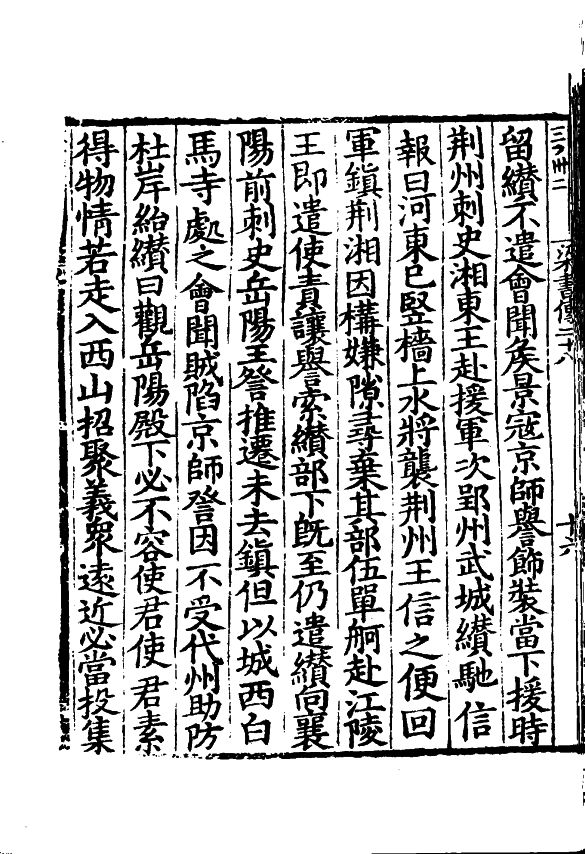 梁書傳二十八
十六
留纉不遣會聞矦景冦京師譽飾裝當下援時
荆州刺史湘東王赴援軍次郢州武城纉馳信
報曰河東已竪檣上水將襲荆州王信之便回
軍鎮荆湘因構嫌隙尋棄其部伍單舸赴江陵
王即遣使責讓譽索纉部下旣至仍遣纉向襄
陽前刺史岳陽王詧推遷未去鎮但以城西白
馬寺處之會聞賊陷京師詧因不受代州助防
杜岸紿纉曰觀岳陽殿下必不容使君使君素
得物情若走入西山招聚義衆遠近必當投集